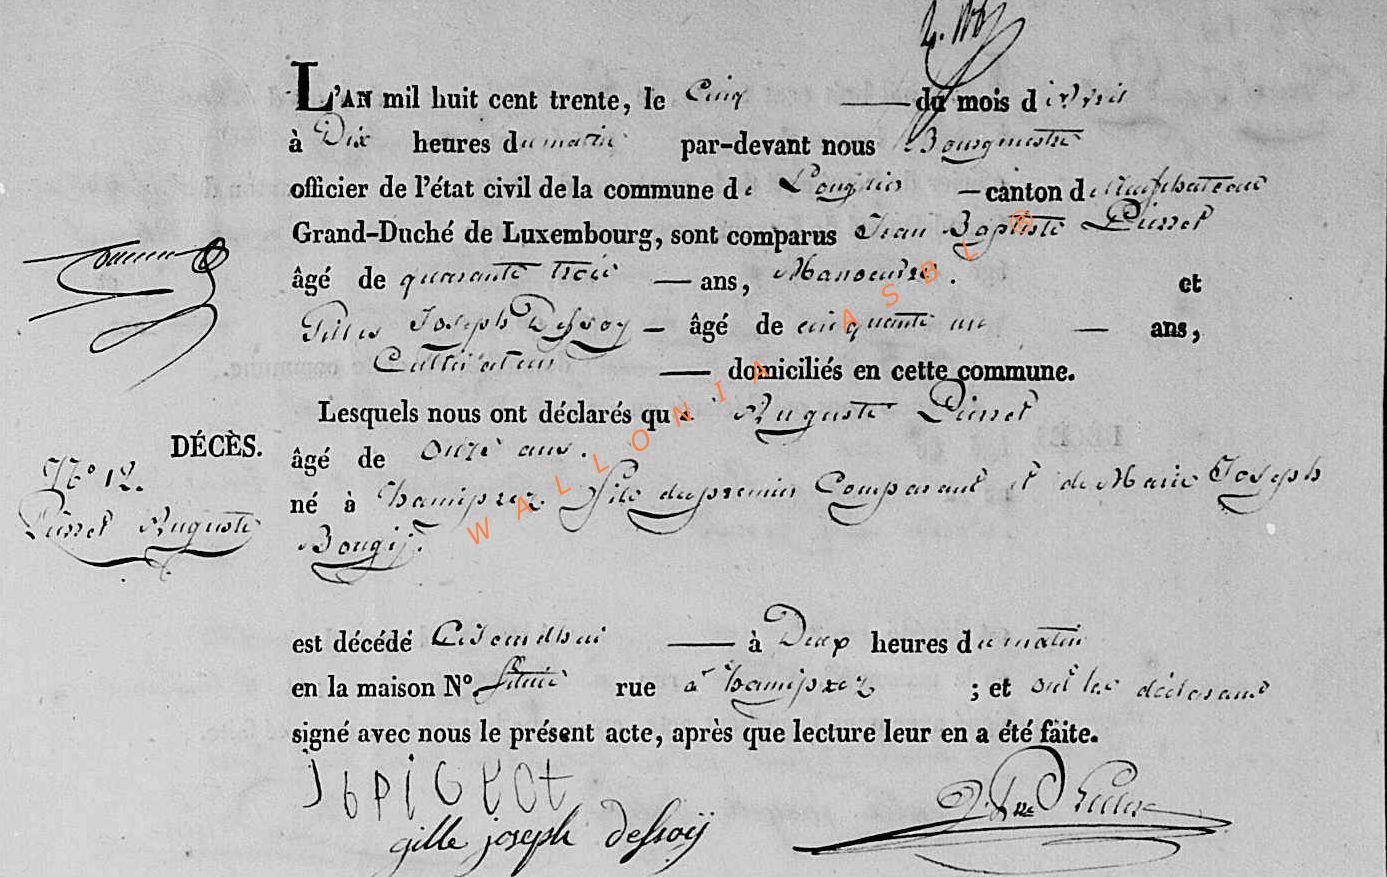 L'AN mil huit cent trente, le Cinq du mois d'avril
à Dix heures du matin par-devant nous Bourgmestre
officier de l'état civil de la commune de Longlier canton de Neufchateau
Grand-Duché de Luxembourg, sont comparus Jean Baptiste
âgé de quarante trois ans, Manoeuvre. et
Gilles Joseph Dessoy âgé de cinquante un ans,
Cultivateur domiciliés en cette commune.
Lesquels nous ont déclarés que Auguste
DÉCÈS.
âgé de Onze ans.
N° 12.
né à hamiprez fils du premier Comparant et de Marie Joseph
Auguste
est décédé Cejourdhui à Deux heures du matin
en la maison N°. située rue à hamiprez ; et ont les déclarans
signé avec nous le présent acte, après que lecture leur en a été faite.
gille joseph dessoÿ
WALLONIA ASBL ®